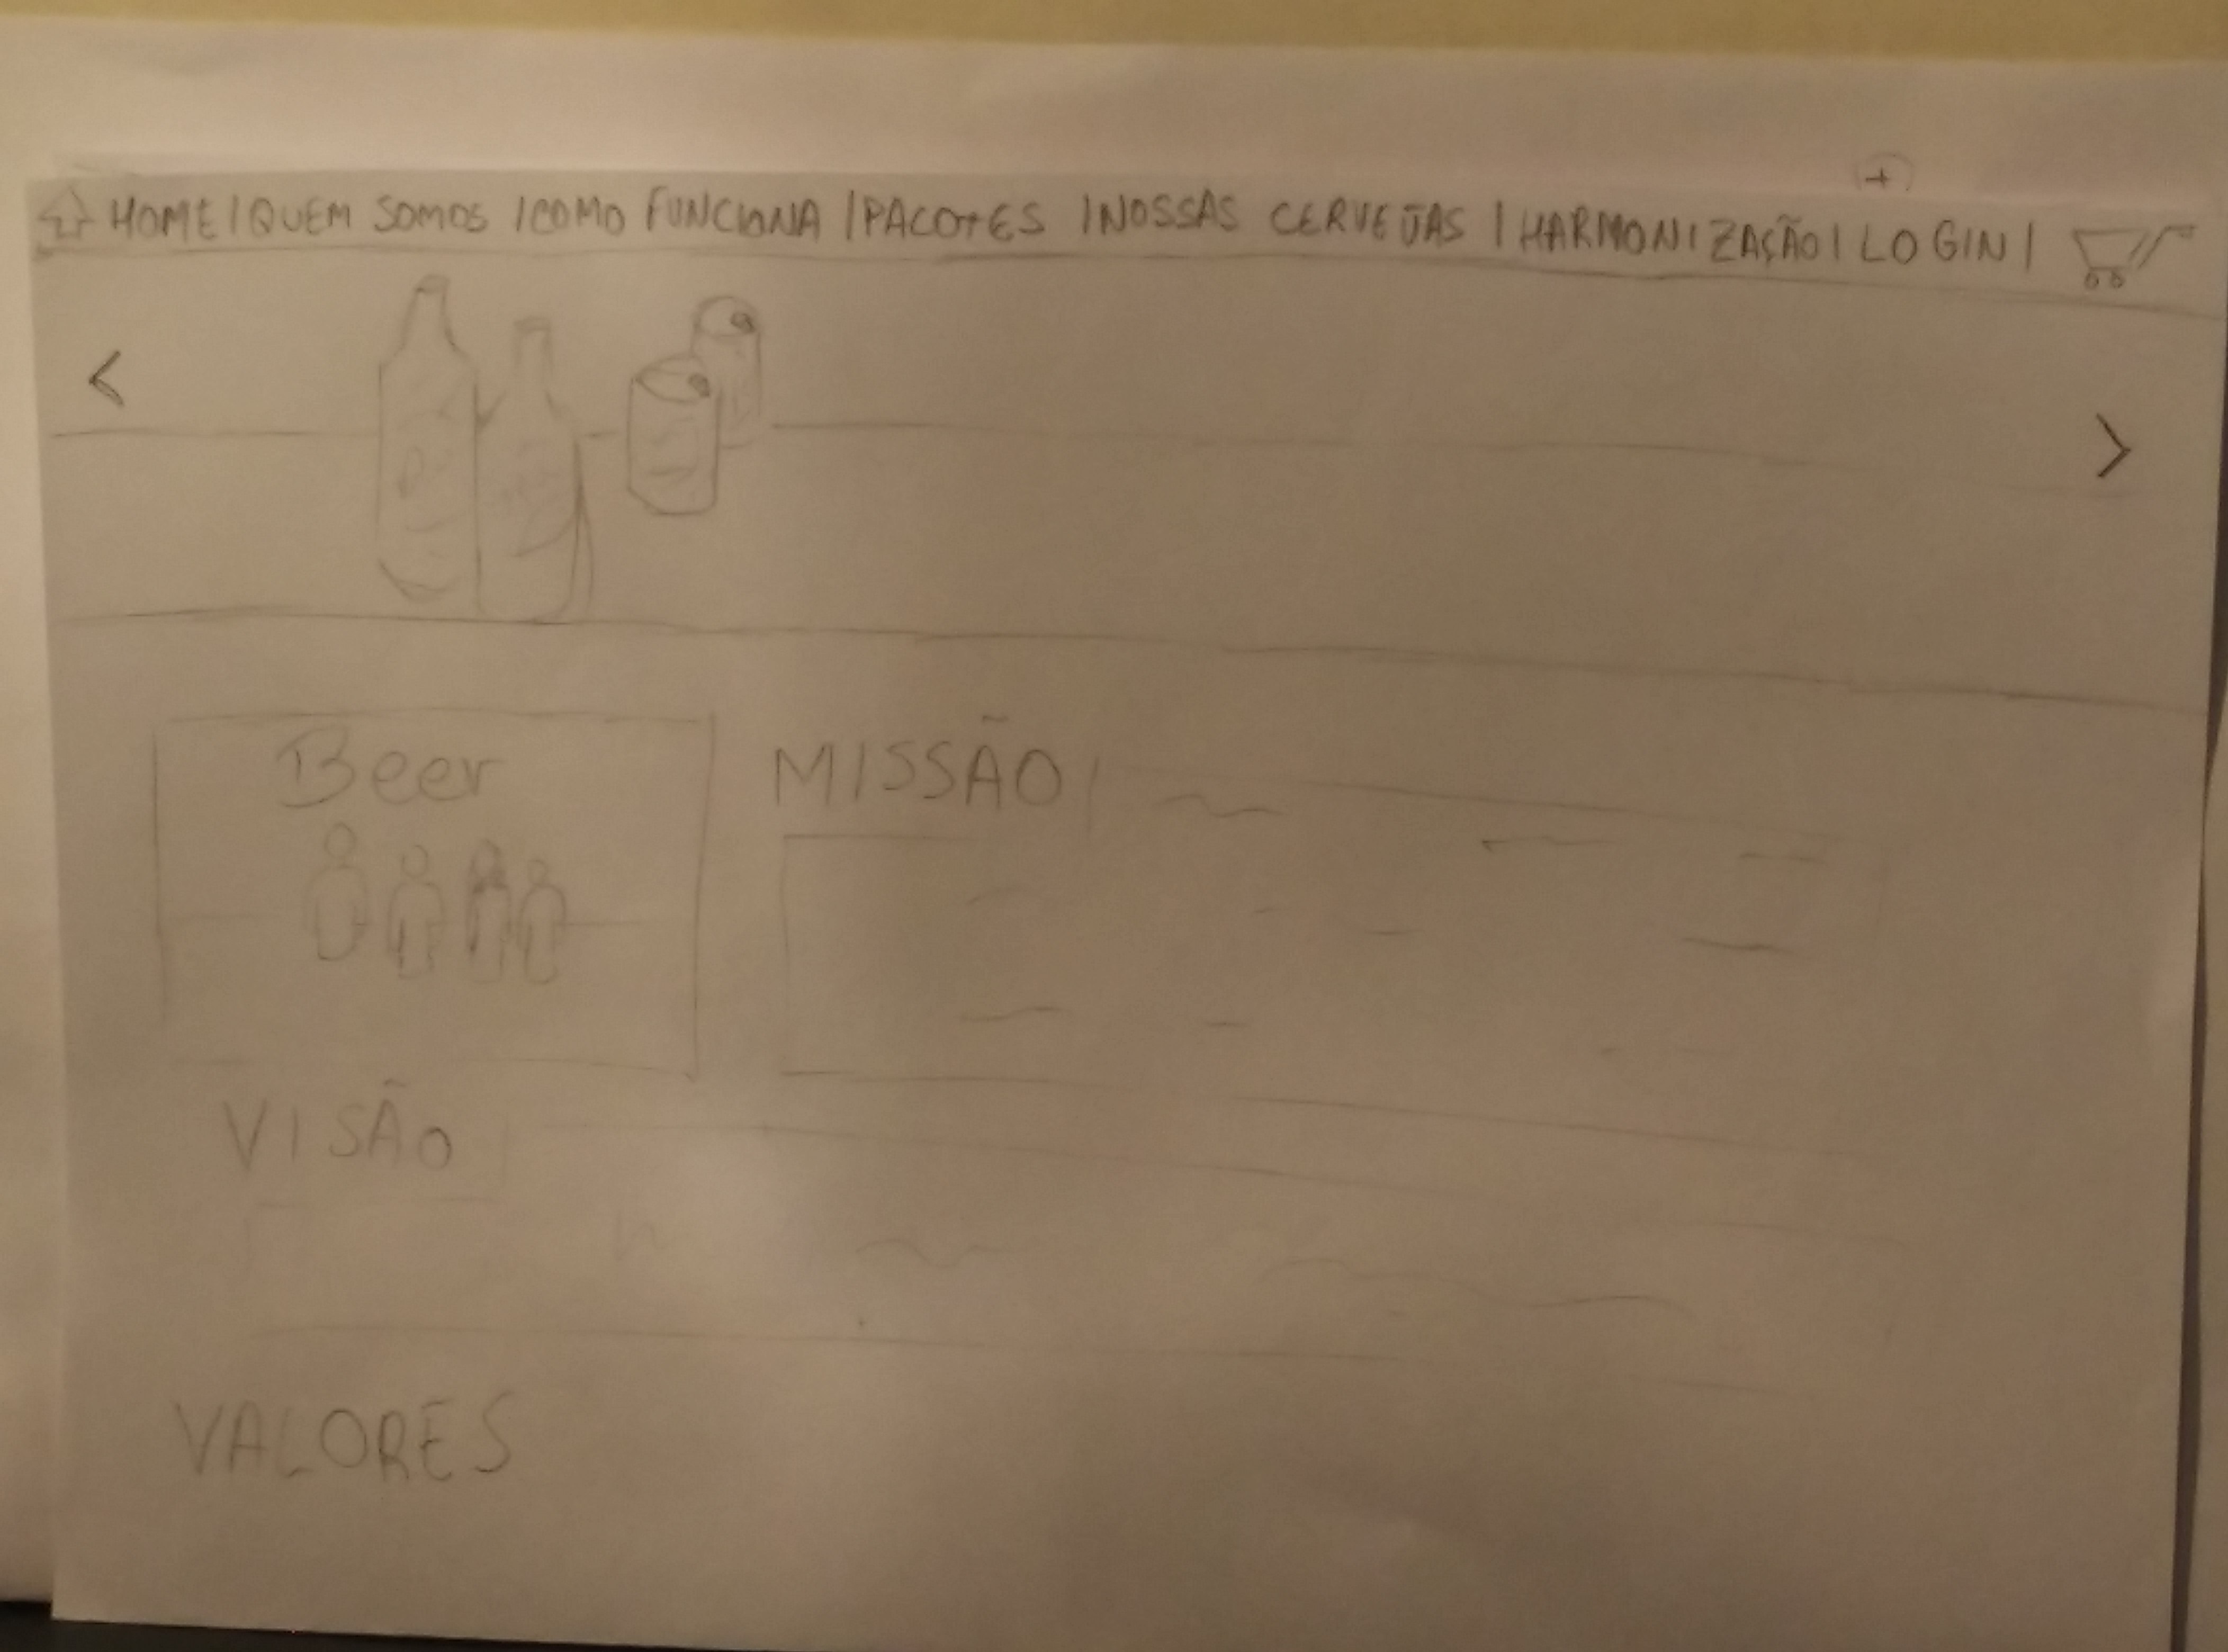 +
HOME | QUEM SOMOS | COMO FUNCIONA | PACOTES | NOSSAS CERVEJAS | HARMONIZAÇÃO | LOGIN |
<
>
Beer
MISSÃO
VISÃO
VALORES